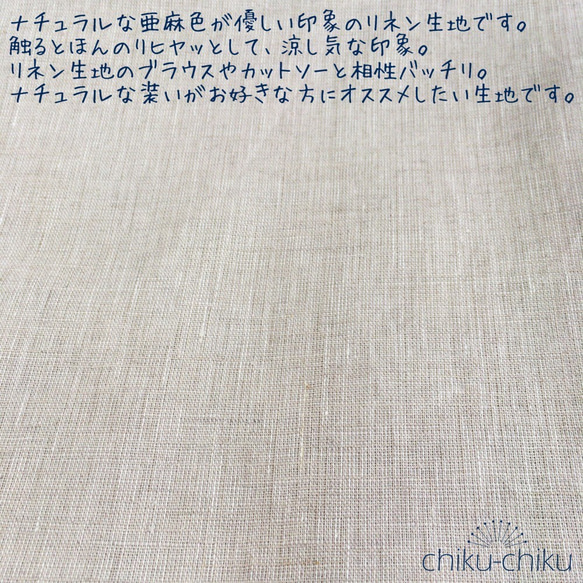 ナチュラルな亜麻色が優しい印象のリネン生地です。
触るとほんのりヒヤッとして、涼し気な印象。
リネン生地のブラウスやカットソーと相性バッチリ。
ナチュラルな装いがお好きな方にオススメしたい生地です。
chiku-chiku